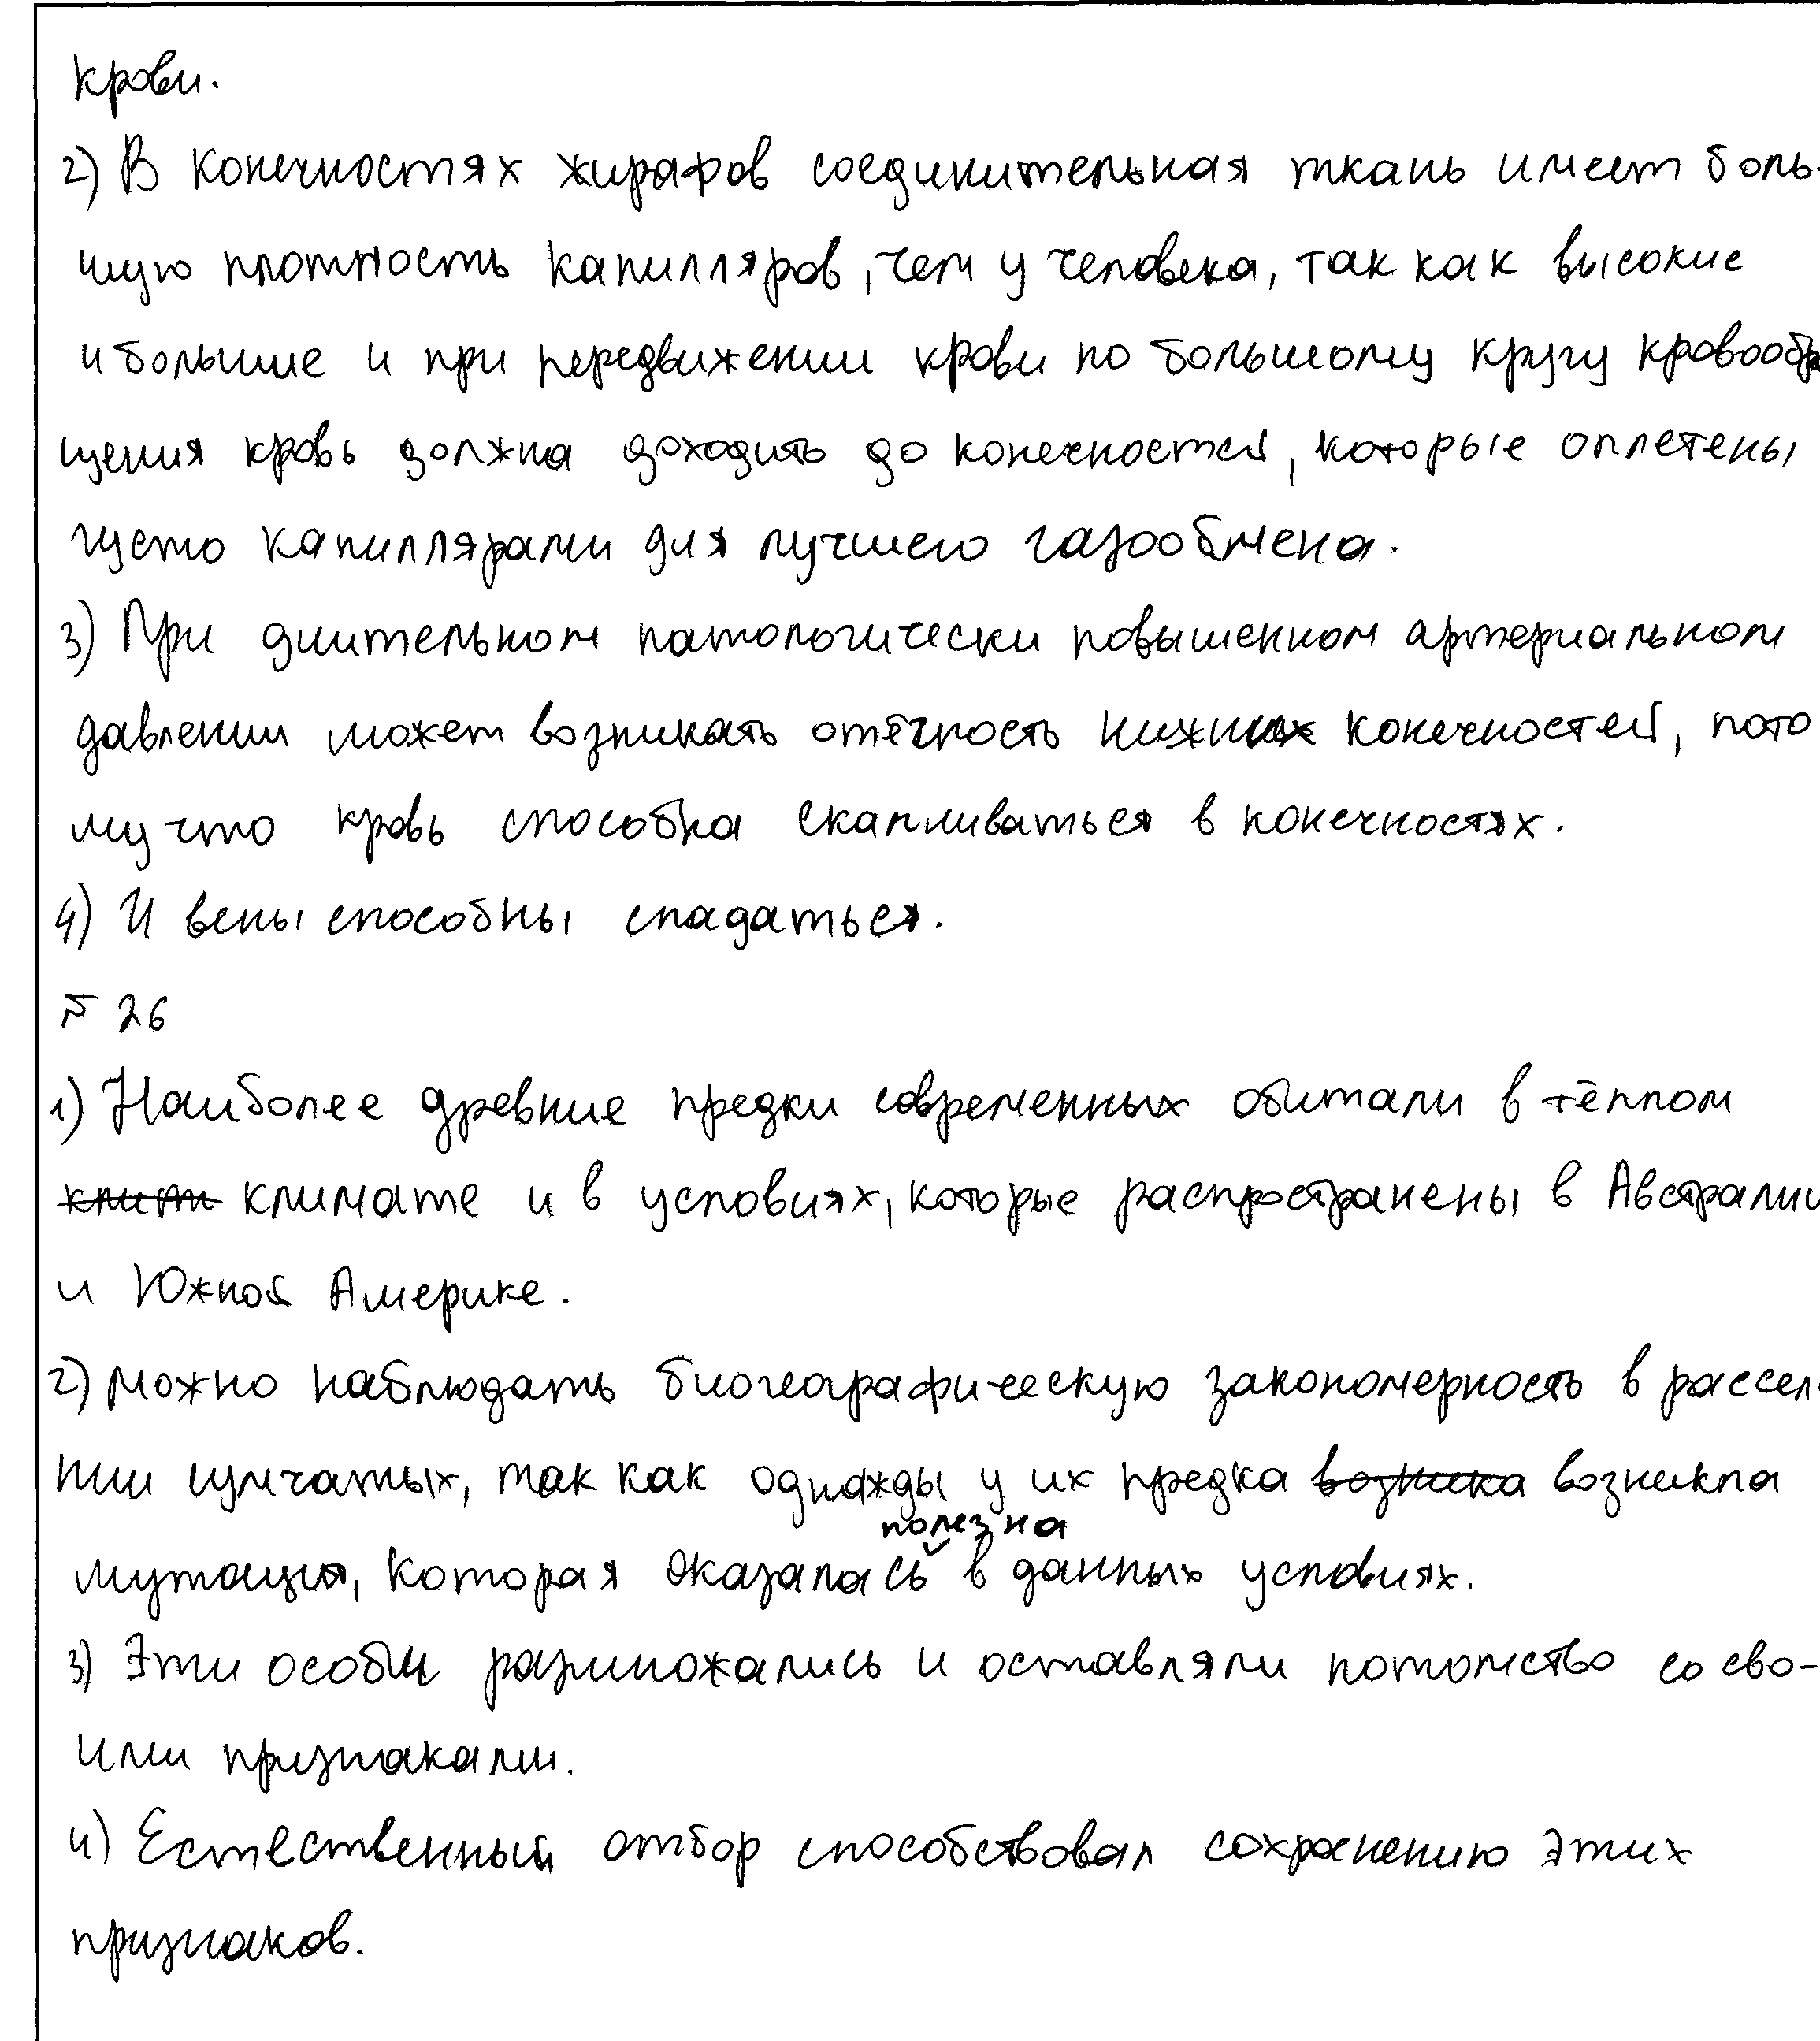 крови.
2) В конечностях жирафов соединительная ткань имеет боль-
шую плотность капилляров, чем у человека, так как высокие
и большие и при передвижении крови по большому кругу кровообра
щения кровь должна доходить до конечностей, которые оплетены
густо капиллярами для лучшего газообмена.
3) При длительном патологически повышенном артериальном
давлении может возникать отёчность нижних конечностей, пото
му что кровь способна скапливаться в конечностях.
4) И вены способны спадаться.
№ 26
1) Наиболее древние предки современных обитали в тёплом
климате и в условиях, которые распространены в Австралии
и Южной Америке.
2) можно наблюдать биогеографическую закономерность в рассел-
нии сумчатых, так как однажды у их предка возникла
мутация, которая оказалась полезна в данных условиях.
3) Эти особи размножались и оставляли потомство со сво-
ими признаками.
4) Естественный отбор способствовал сохранению этих
признаков.